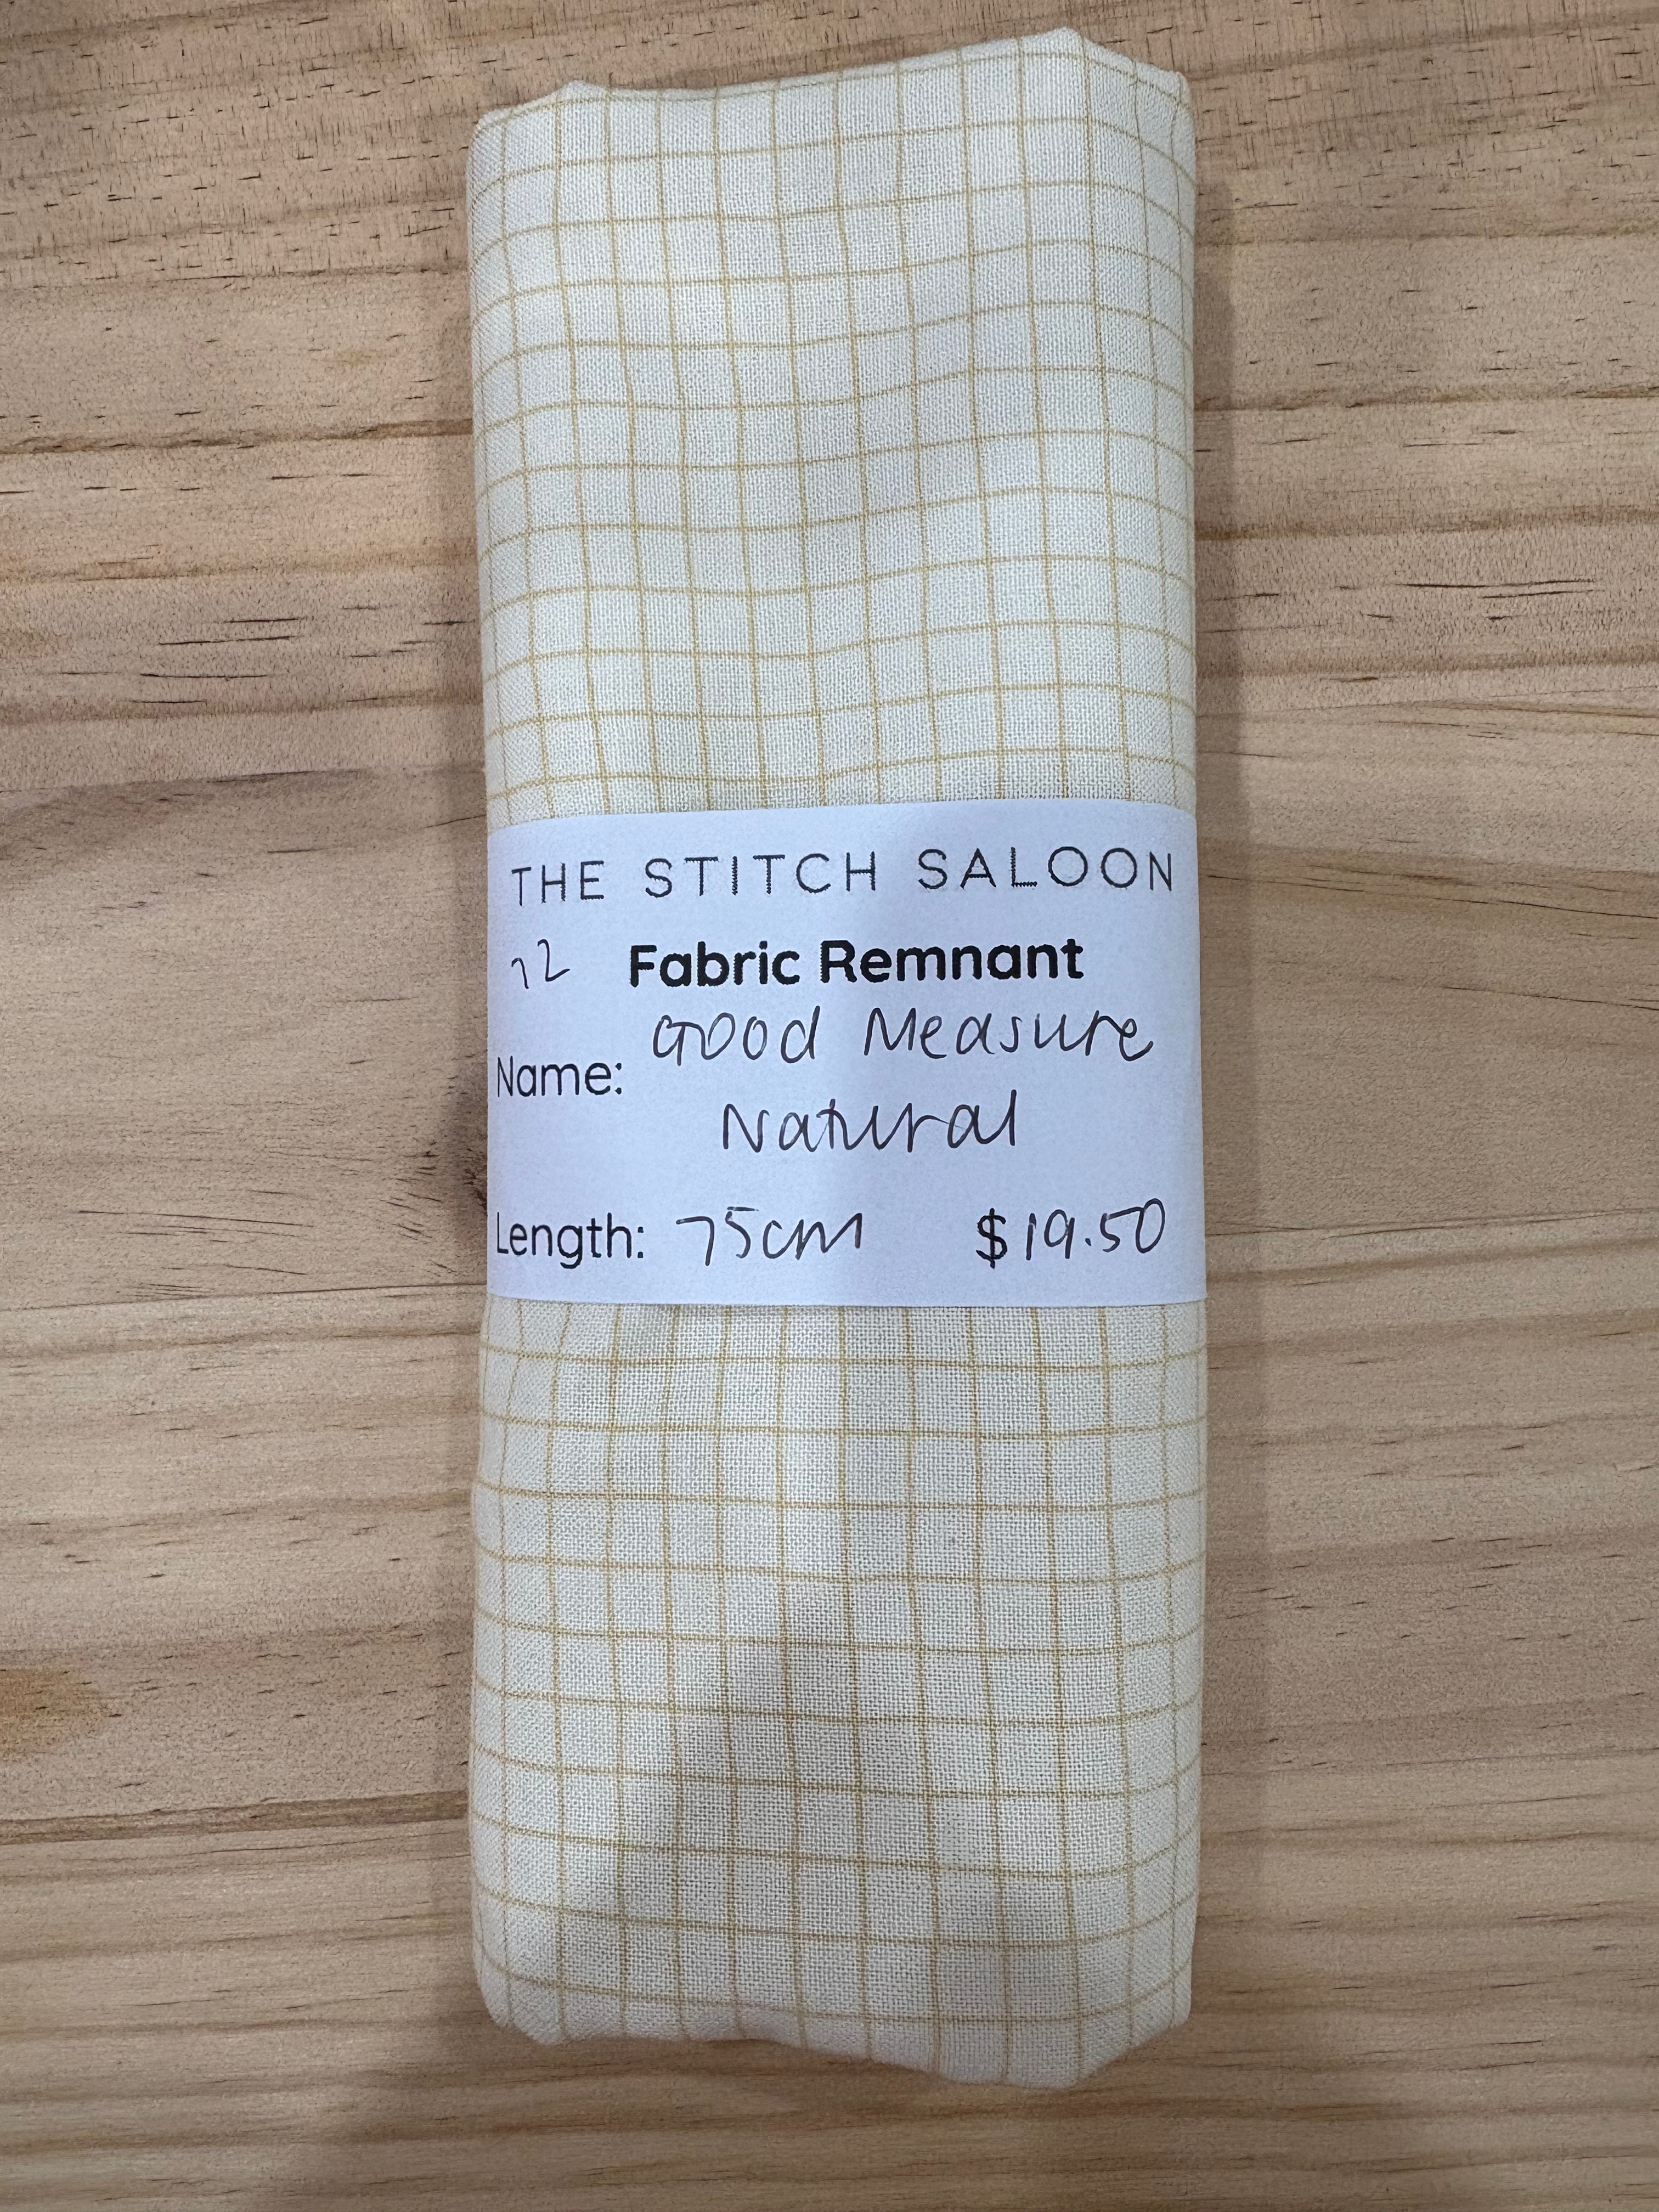 THE STITCH SALOON
72 Fabric Remnant
Name: Good Measure
Natural
Length: 75cm $19.50